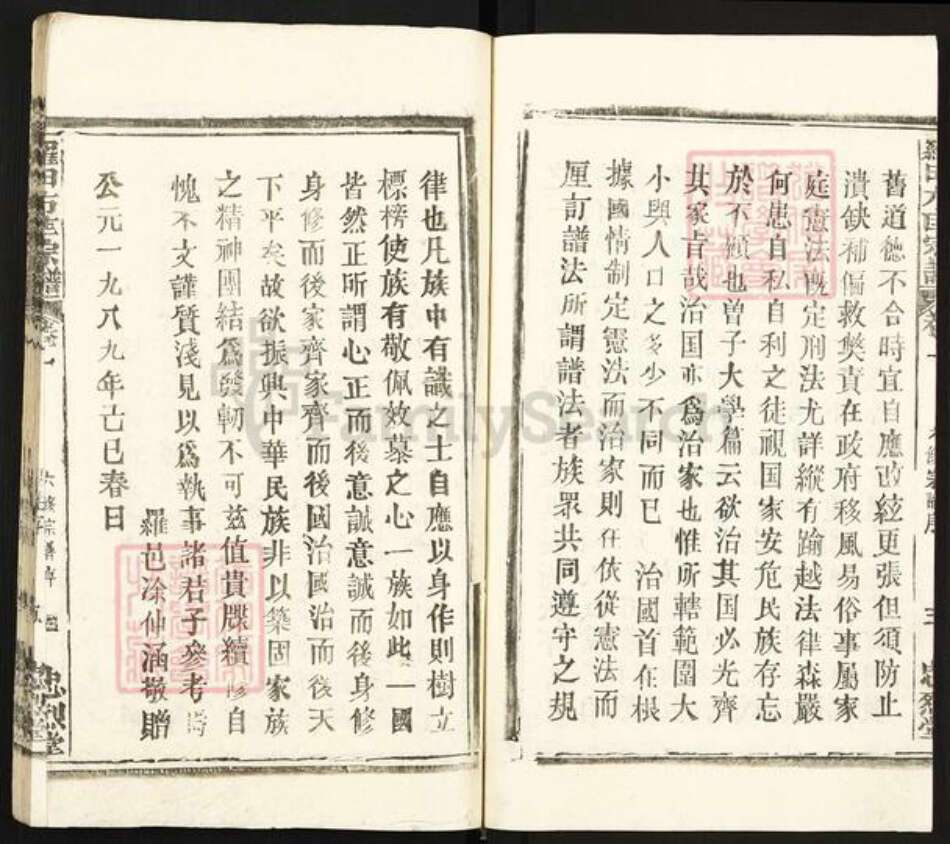 舊道德不合時宜自應改絃更張但須防止
潰缺補偏救獘責在政府移風易俗事屬家
庭憲法既定刑法尤詳縱有踰越法律森嚴
何患自私自利之徒視国家安危民族存忘
於不顧也曽子大學篇云欲治其国必光齊
其家旨哉治国亦為治家也惟所轄範圍大
小與人口之多少不同而已 治國首在根
據國情制定憲法而治家則在依從憲法而
厘訂譜法所謂譜法者族眾共同遵守之規
律也凡族中有識之士自應以身作則樹立
標榜使族有敬佩效慕之心一族如此一國
皆然正所謂心正而後意誠意誠而後身修
身修而後家齊家齊而後國治國治而後天
下平矣故欲振興中華民族非以築固家族
之精神團結爲發軔不可兹值貴牒續修自
愧不文謹質淺見以為執事諸君子參考
羅邑凃仲涵敬贈
公元一九八九年己巳春日
羅田方氏宗譜 卷一
忠烈堂
FamilySearch